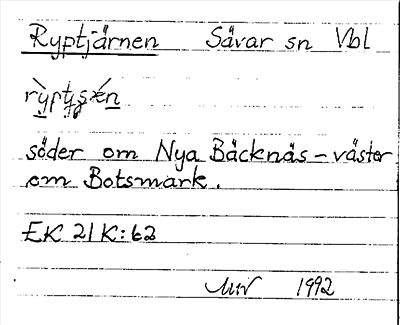 Ryptjärnen Sävar sn Vbl
söder om Nya Bäcknäs - väster
om Botsmark.
EK 21 K: 62
1992